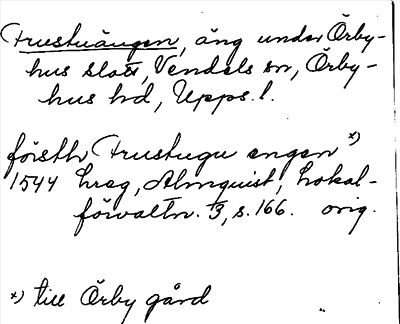 Frustuängen, äng under Örby-
hus slott, Vendels sn, Örby-
hus hd, Upps. l.
förstn Frustugu engen x)
1544 hreg, Almquist, Lokal-
förvaltn. 3, s. 166. orig.
x) till Örby gård